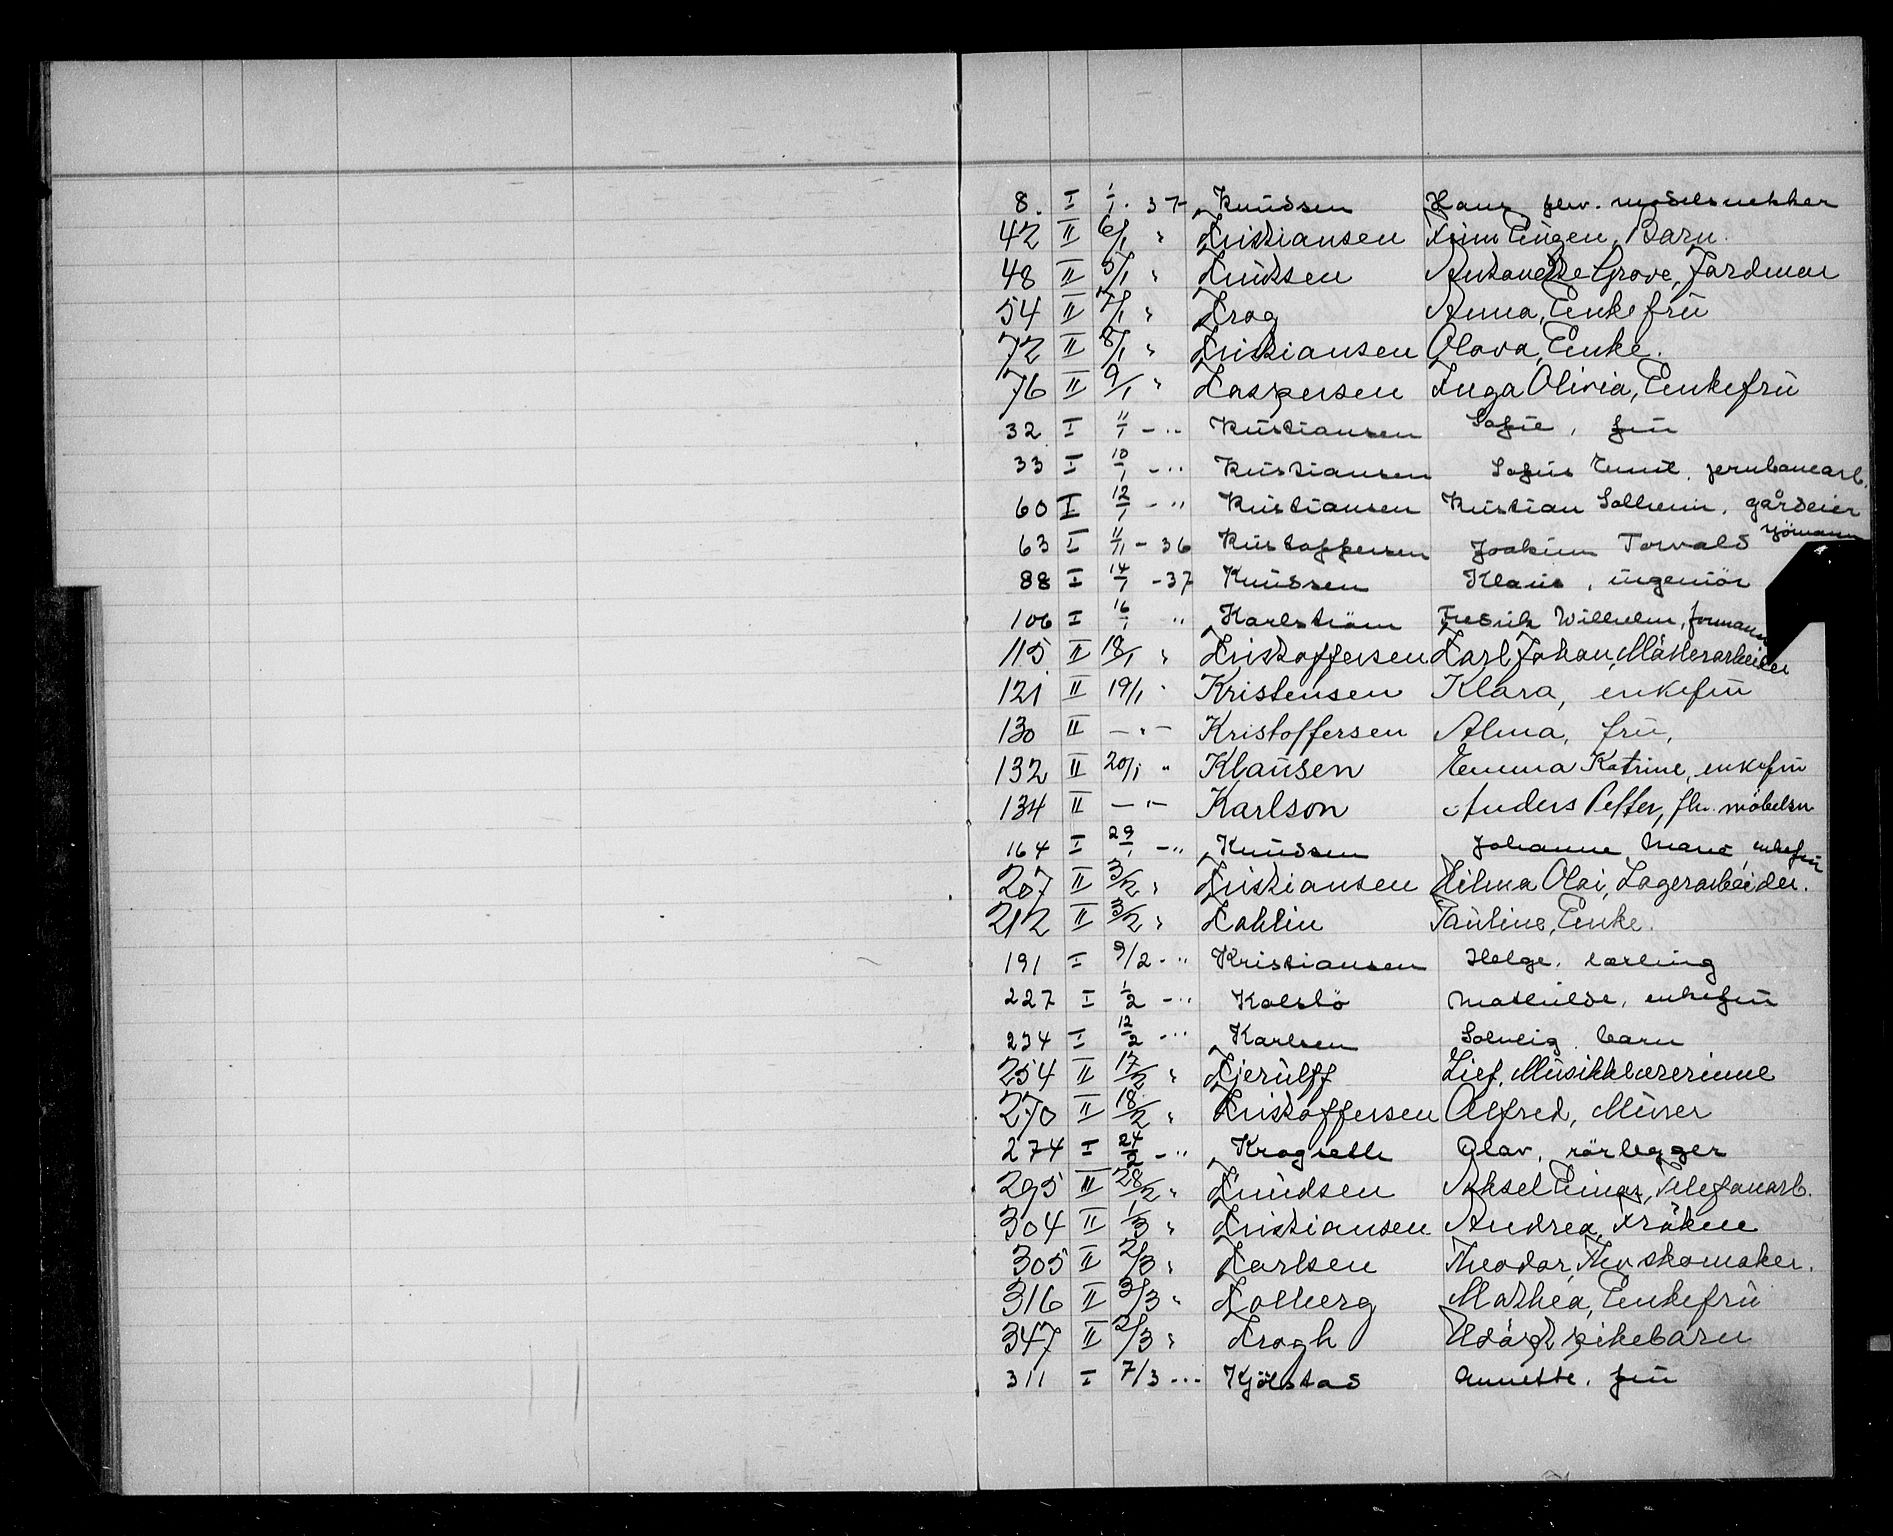 8. I 1/1. 37 Knudsen Hans, fhv. modelsnekker
42 II 6/1 " Kristiansen Finn Eugen, Barn.
48 II 5/1 " Knutsen Antonette Grove, Jordmor
54 II 7/1 " Krog Anna, Enkefru
72 II 8/1 " Kristiansen Olava, Enke.
76 II 9/1 " Kaspersen Inga Olivia, Enkefru
32 I 11/1 - " Kristiansen Sofie, fru
33 I 10/1 - " Kristiansen Sofus Emil, jernbanearb.
60 I 12/1 - " Kristiansen Kristian Solheim, gårdeier
63 I 11/11 - 36 Kristoffersen Joakim Torvald sjömann
88 I 14/1 - 37 Knudsen Klaus, ingeniör
106 I 16/1 " Karlström Fredrik Wilhelm, formann
115 II 18/1 " Kristoffersen Karl Johan, Mållerarbeider
121 II 19/1 " Kristensen Klara, enkefru
130 II - " - Kristoffersen Alma, fru,
132 II 20/1 " Klausen Emma Katrine, enkefru
134 II - " - Karlson Anders Petter, fhv. möbelsn
164 I 29/1 - " Knudsen Johanne Marie, enkefru
207 II 3/2 " Kristiansen Hilma Olai, Lagerarbeider.
212 II 3/2 " Kahlin Pauline, Enke.
191 I 9/2 - " Kristiansen Helge, lærling
227 I 1/2 - " Kolstö Mathilde, enkefru
234 I 12/2 - " Karlsen Solveig, barn
254 II 17/2 " Kjerulff Lief, Musikklærerinne
270 II 18/2 " Kristoffersen Alfred, Murer
274 I 24/2 - " Krogseth Olav, rörlegger
295 II 28/2 " Knudsen Aksel Einar, Telefonarb.
304 II 1/3 " Kristiansen Andrea, Fröken
305 II 2/3 " Karlsen Theodor, Fhv. skomaker.
316 II 3/3 " Kolberg Mathea, Enkefru
347 II 2/3 " Krogh Udöpt pikebarn
311 I 7/3 - " Kjölstad Annette, fru